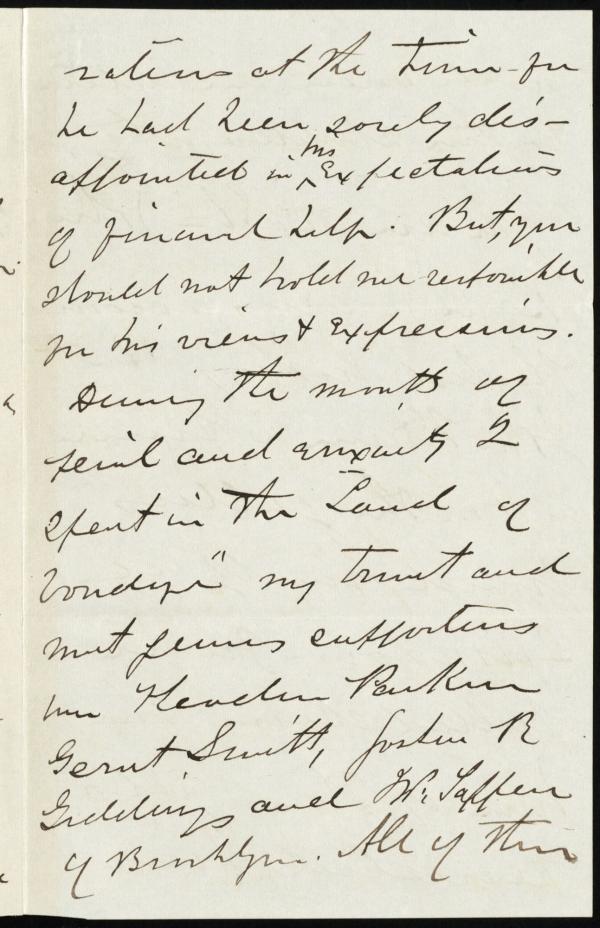 rations at the time - for
he had been sorely dis-
appointed in his Expectations
of financial help. But, you
should not hold me responsible
for his views & Expressions.
During the months of
peril and anxiety I
spent in the Land of
bondage" my truest and
most generous supporters
were Theodore Parker
Gerrit Smith, Joshua R
Giddings and Wm. Tappan
of Brooklyn. All of them